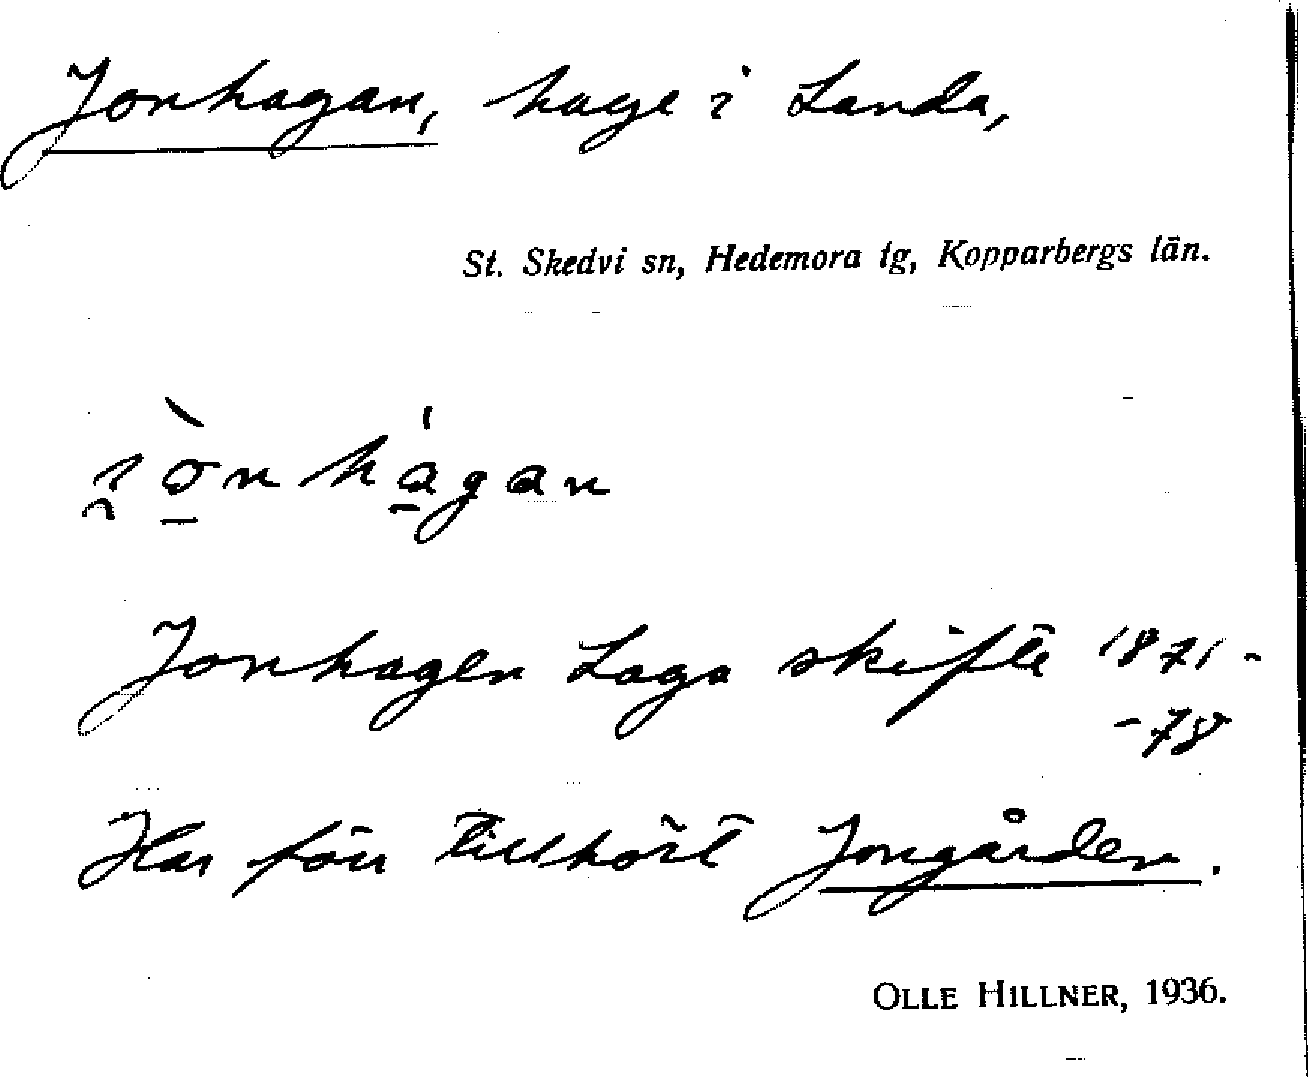 Jonhagan, hage i Landa,
St. Skedvi sn, Hedemora tg, Kopparbergs län.
i̯ò̱nhá̱gan
Jonhagen Laga skifte 1871-
-78
Har förr tillhört Jongården.
OLLE HILLNER, 1936.